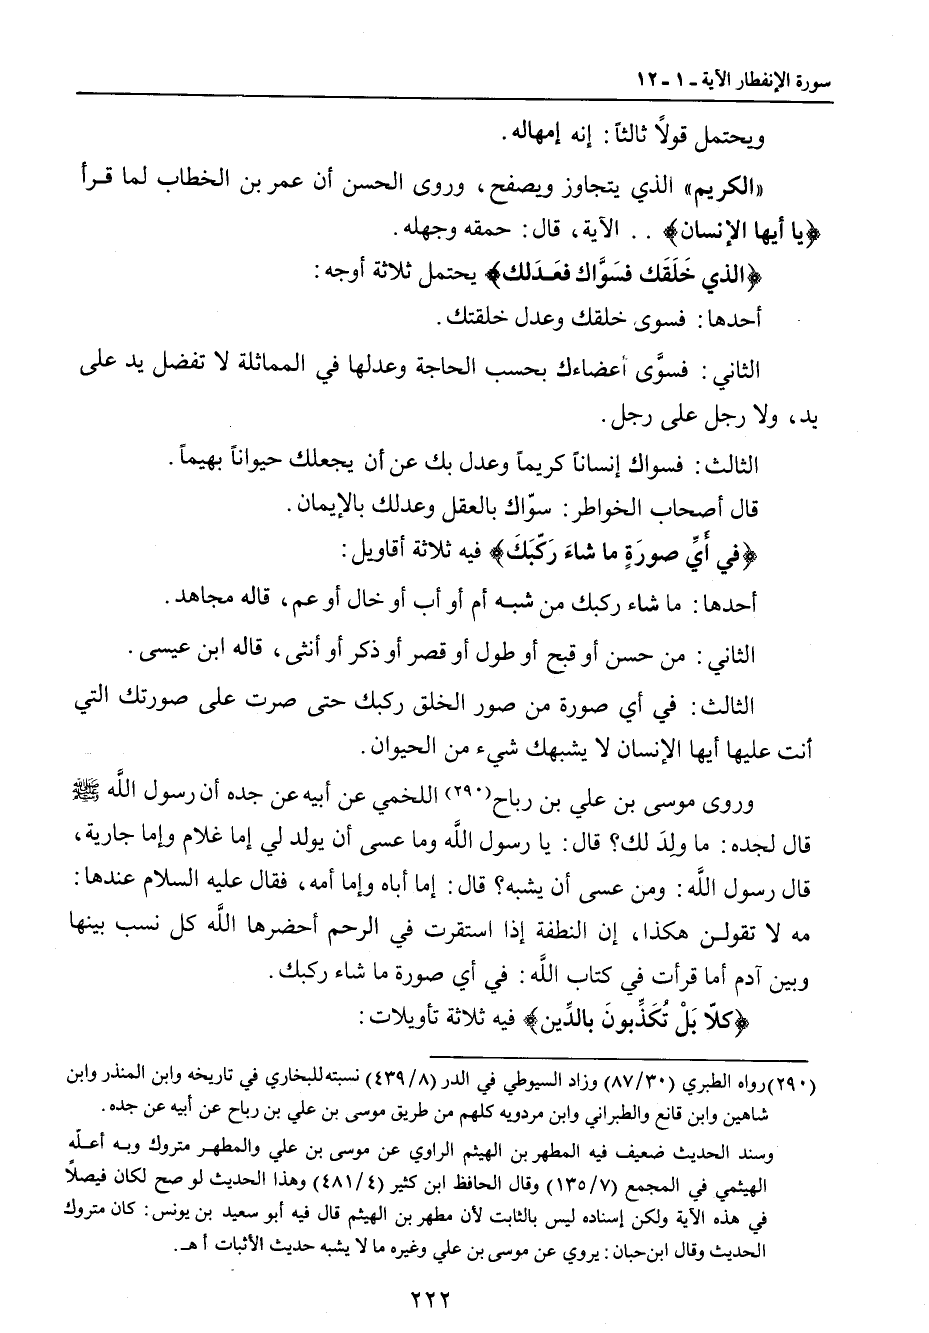 سورة الإنفطار الآية ـ ١ ـ ١٢
ويحتمل قولاً ثالثاً : إنه إمهاله .
«الكريم» الذي يتجاوز ويصفح ، وروى الحسن أن عمر بن الخطاب لما قرأ
﴿يا أيها الإنسان﴾ . . الآية ، قال : حمقه وجهله .
﴿الذي خَلَقَك فسَوَّاك فعَدَلك﴾ يحتمل ثلاثة أوجه :
أحدها : فسوى خلقك وعدل خلقتك .
الثاني : فسوَّى أعضاءك بحسب الحاجة وعدلها في المماثلة لا تفضل يد على
يد ، ولا رجل على رجل .
الثالث : فسواك إنساناً كريماً وعدل بك عن أن يجعلك حيواناً بهيماً .
قال أصحاب الخواطر : سوّاك بالعقل وعدلك بالإيمان .
﴿في أَيِّ صورَةٍ ما شاءَ رَكّبَكَ﴾ فيه ثلاثة أقاويل :
أحدها : ما شاء ركبك من شبه أم أو أب أو خال أو عم ، قاله مجاهد .
الثاني : من حسن أو قبح أو طول أو قصر أو ذكر أو أنثى ، قاله ابن عيسى .
الثالث : في أي صورة من صور الخلق ركبك حتى صرت على صورتك التي
أنت عليها أيها الإنسان لا يشبهك شيء من الحيوان .
وروى موسى بن علي بن رباح(٢٩٠) اللخمي عن أبيه عن جده أن رسول اللَّه ﷺ
قال لجده : ما ولِدَ لك؟ قال : يا رسول اللَّه وما عسى أن يولد لي إما غلام وإما جارية ،
قال رسول اللَّه : ومن عسى أن يشبه؟ قال : إما أباه وإما أمه ، فقال عليه السلام عندها :
مه لا تقولن هكذا ، إن النطفة إذا استقرت في الرحم أحضرها اللَّه كل نسب بينها
وبين آدم أما قرأت في كتاب اللَّه : في أي صورة ما شاء ركبك .
﴿كلّا بَلْ تُكَذِّبونَ بالدِّين﴾ فيه ثلاثة تأويلات :
(٢٩٠) رواه الطبري (٨٧/٣٠) وزاد السيوطي في الدر (٤٣٩/٨) نسبته للبخاري في تاريخه وابن المنذر وابن
شاهين وابن قانع والطبراني وابن مردويه كلهم من طريق موسى بن علي بن رباح عن أبيه عن جده .
وسند الحديث ضعيف فيه المطهر بن الهيثم الراوي عن موسى بن علي والمطهر متروك وبه أعلّه
الهيثمي في المجمع (١٣٥/٧) وقال الحافظ ابن كثير (٤٨١/٤) وهذا الحديث لو صح لكان فيصلاً
في هذه الآية ولكن إسناده ليس بالثابت لأن مطهر بن الهيثم قال فيه أبو سعيد بن يونس : كان متروك
الحديث وقال ابن حبان : يروي عن موسى بن علي وغيره ما لا يشبه حديث الأثبات أ هـ .
٢٢٢